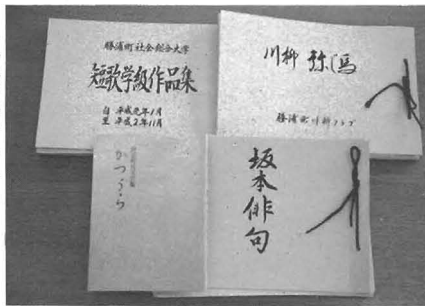 勝浦町社会総合大学
短歌学級作品集
自 平成元年1月
至 平成2年11月
川柳 弥馮
勝浦町川柳クラブ
かつうら
坂本俳句